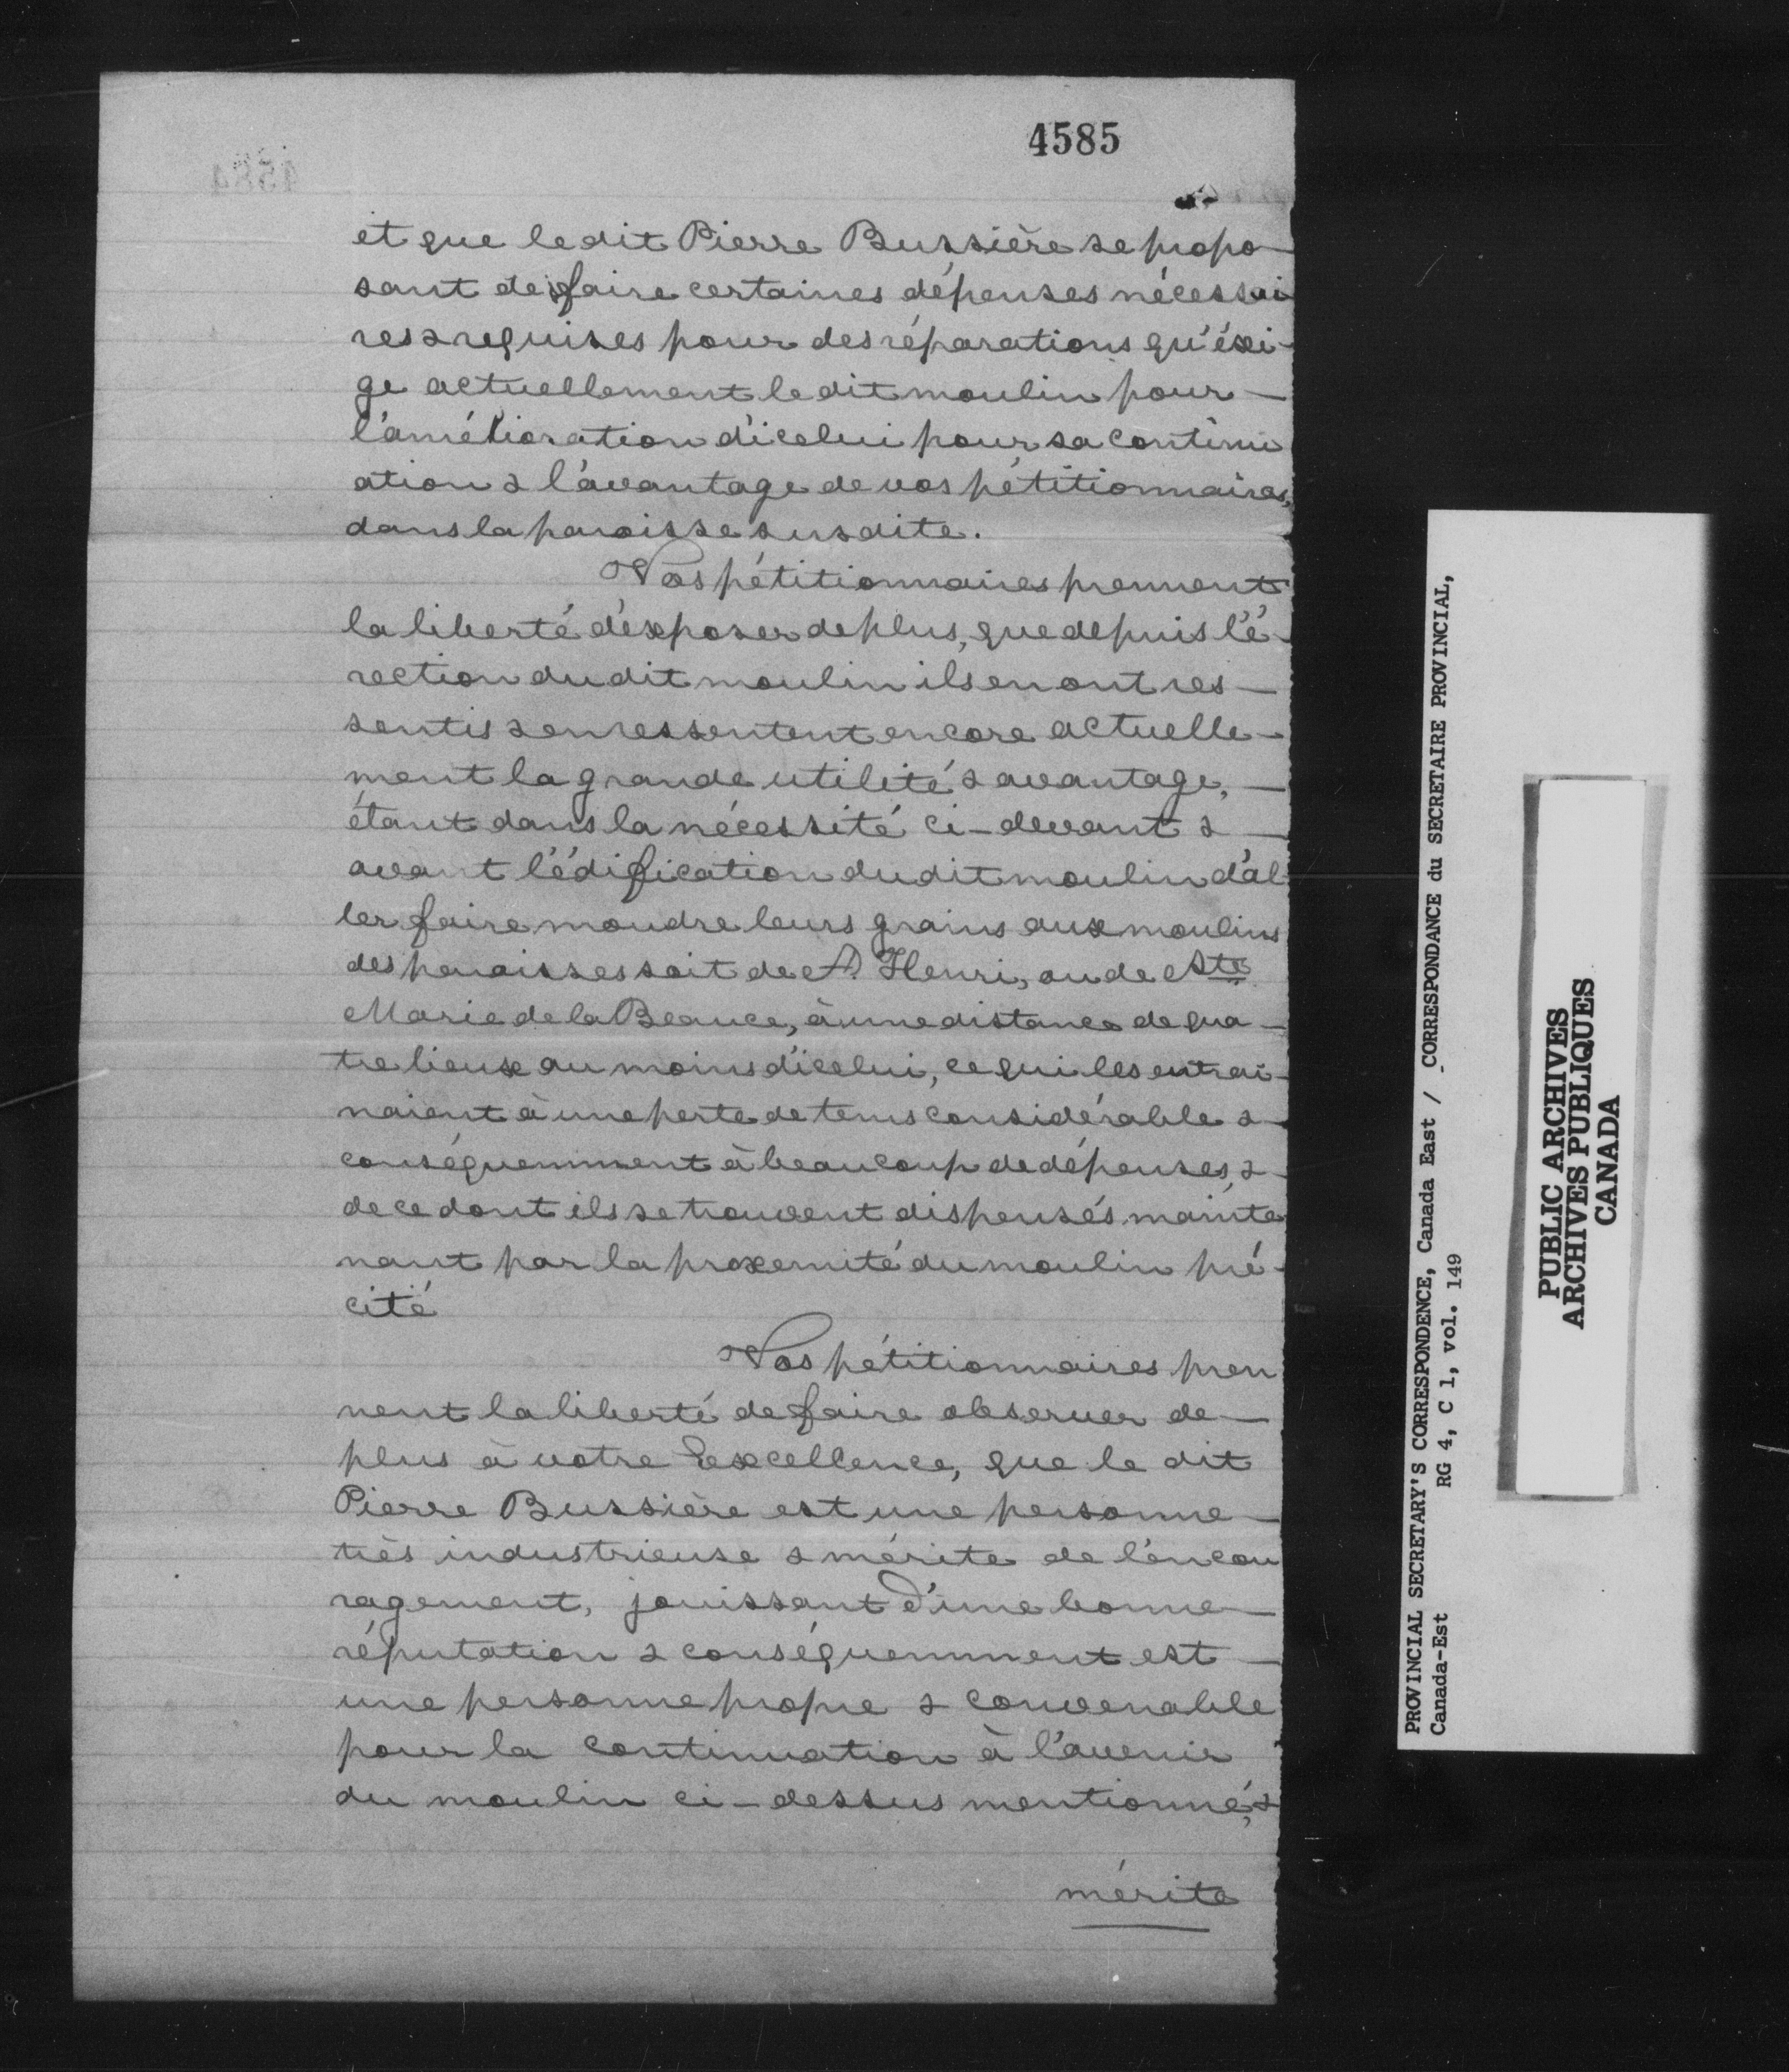 4585
et que le dit Pierre Bussière se propo-
sant de faire certaines dépenses nécessai
res & requises pour des réparations qu'éxi-
ge actuellement le dit moulin pour —
l'amélioration d'icelui pour sa continu
ation & l'avantage de vos pétitionnaires,
dans la paroisse susdite.
Vos pétitionnaires prennent
la liberté d'exposer de plus, que depuis l'é-
rection du dit moulin ils en ont res —
sentis & en ressentent encore actuelle-
ment la grande utilité & avantage, —
étant dans la nécessité ci-devant & —
avant l'édification du dit moulin d'al-
ler faire moudre leurs grains aux moulins
des paroisses soit de St. Henri, ou de Ste
Marie de la Beauce, à une distance de qua-
tre lieux au moins d'icelui, ce qui les entrai-
naient à une perte de tems considérable &
conséquemment à beaucoup de dépenses, &
de ce dont ils se trouvent dispensés mainte
nant par la proxemité du moulin pré-
cité
Vos pétitionnaires pren
nent la liberté de faire observer de —
plus à votre Excellence, que le dit
Pierre Bussière est une personne —
très industrieuse & mérite de l'encou
ragement, jouissant d'une bonne —
réputation & conséquemment est —
une personne propre & convenable
pour la continuation à l'avenir
du moulin ci-dessus mentionné, &
mérite
PROVINCIAL SECRETARY'S CORRESPONDENCE, Canada East / CORRESPONDANCE du SECRETAIRE PROVINCIAL,
Canada-Est RG 4, C 1, vol. 149
PUBLIC ARCHIVES
ARCHIVES PUBLIQUES
CANADA